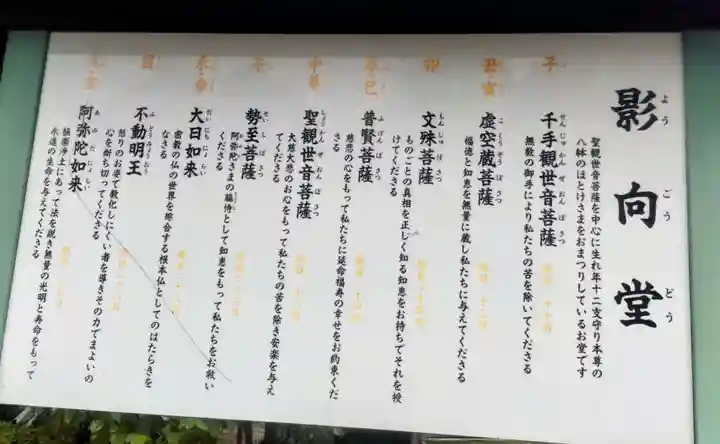 影向堂
よう ごう どう
聖観世音菩薩を中心に生れ年十二支守り本尊の
八躰のほとけさまをおまつりしているお堂です
子
千手観世音菩薩
せんじゅかんぜおんぼさつ
無数の御手により私たちの苦を除いてくださる
丑・寅
虚空蔵菩薩
こくうぞうぼさつ
福徳と知恵を無量に蔵し私たちに与えてくださる
卯
文殊菩薩
もんじゅぼさつ
ものごとの真相を正しく知る知恵をお持ちでそれを授
けてくださる
辰・巳
普賢菩薩
ふげんぼさつ
慈悲の心をもって私たちに延命福寿の幸せをお約束くだ
さる
中尊
聖観世音菩薩
しょうかんぜおんぼさつ
大慈大悲のお心をもって私たちの苦を除き安楽を与え
てくださる
午
勢至菩薩
せいしぼさつ
阿弥陀さまの脇侍として知恵をもって私たちをお救い
くださる
未・申
大日如来
だいにちにょらい
密教の仏の世界を総合する根本仏としてのはたらきを
なさる
酉
不動明王
ふどうみょうおう
怒りのお姿で教化しにくい者を導きその力でまよいの
心を断ち切ってくださる
阿弥陀如来
あみだにょらい
極楽浄土にあって法を説き無量の光明と寿命をもって
永遠の生命を与えてくださる